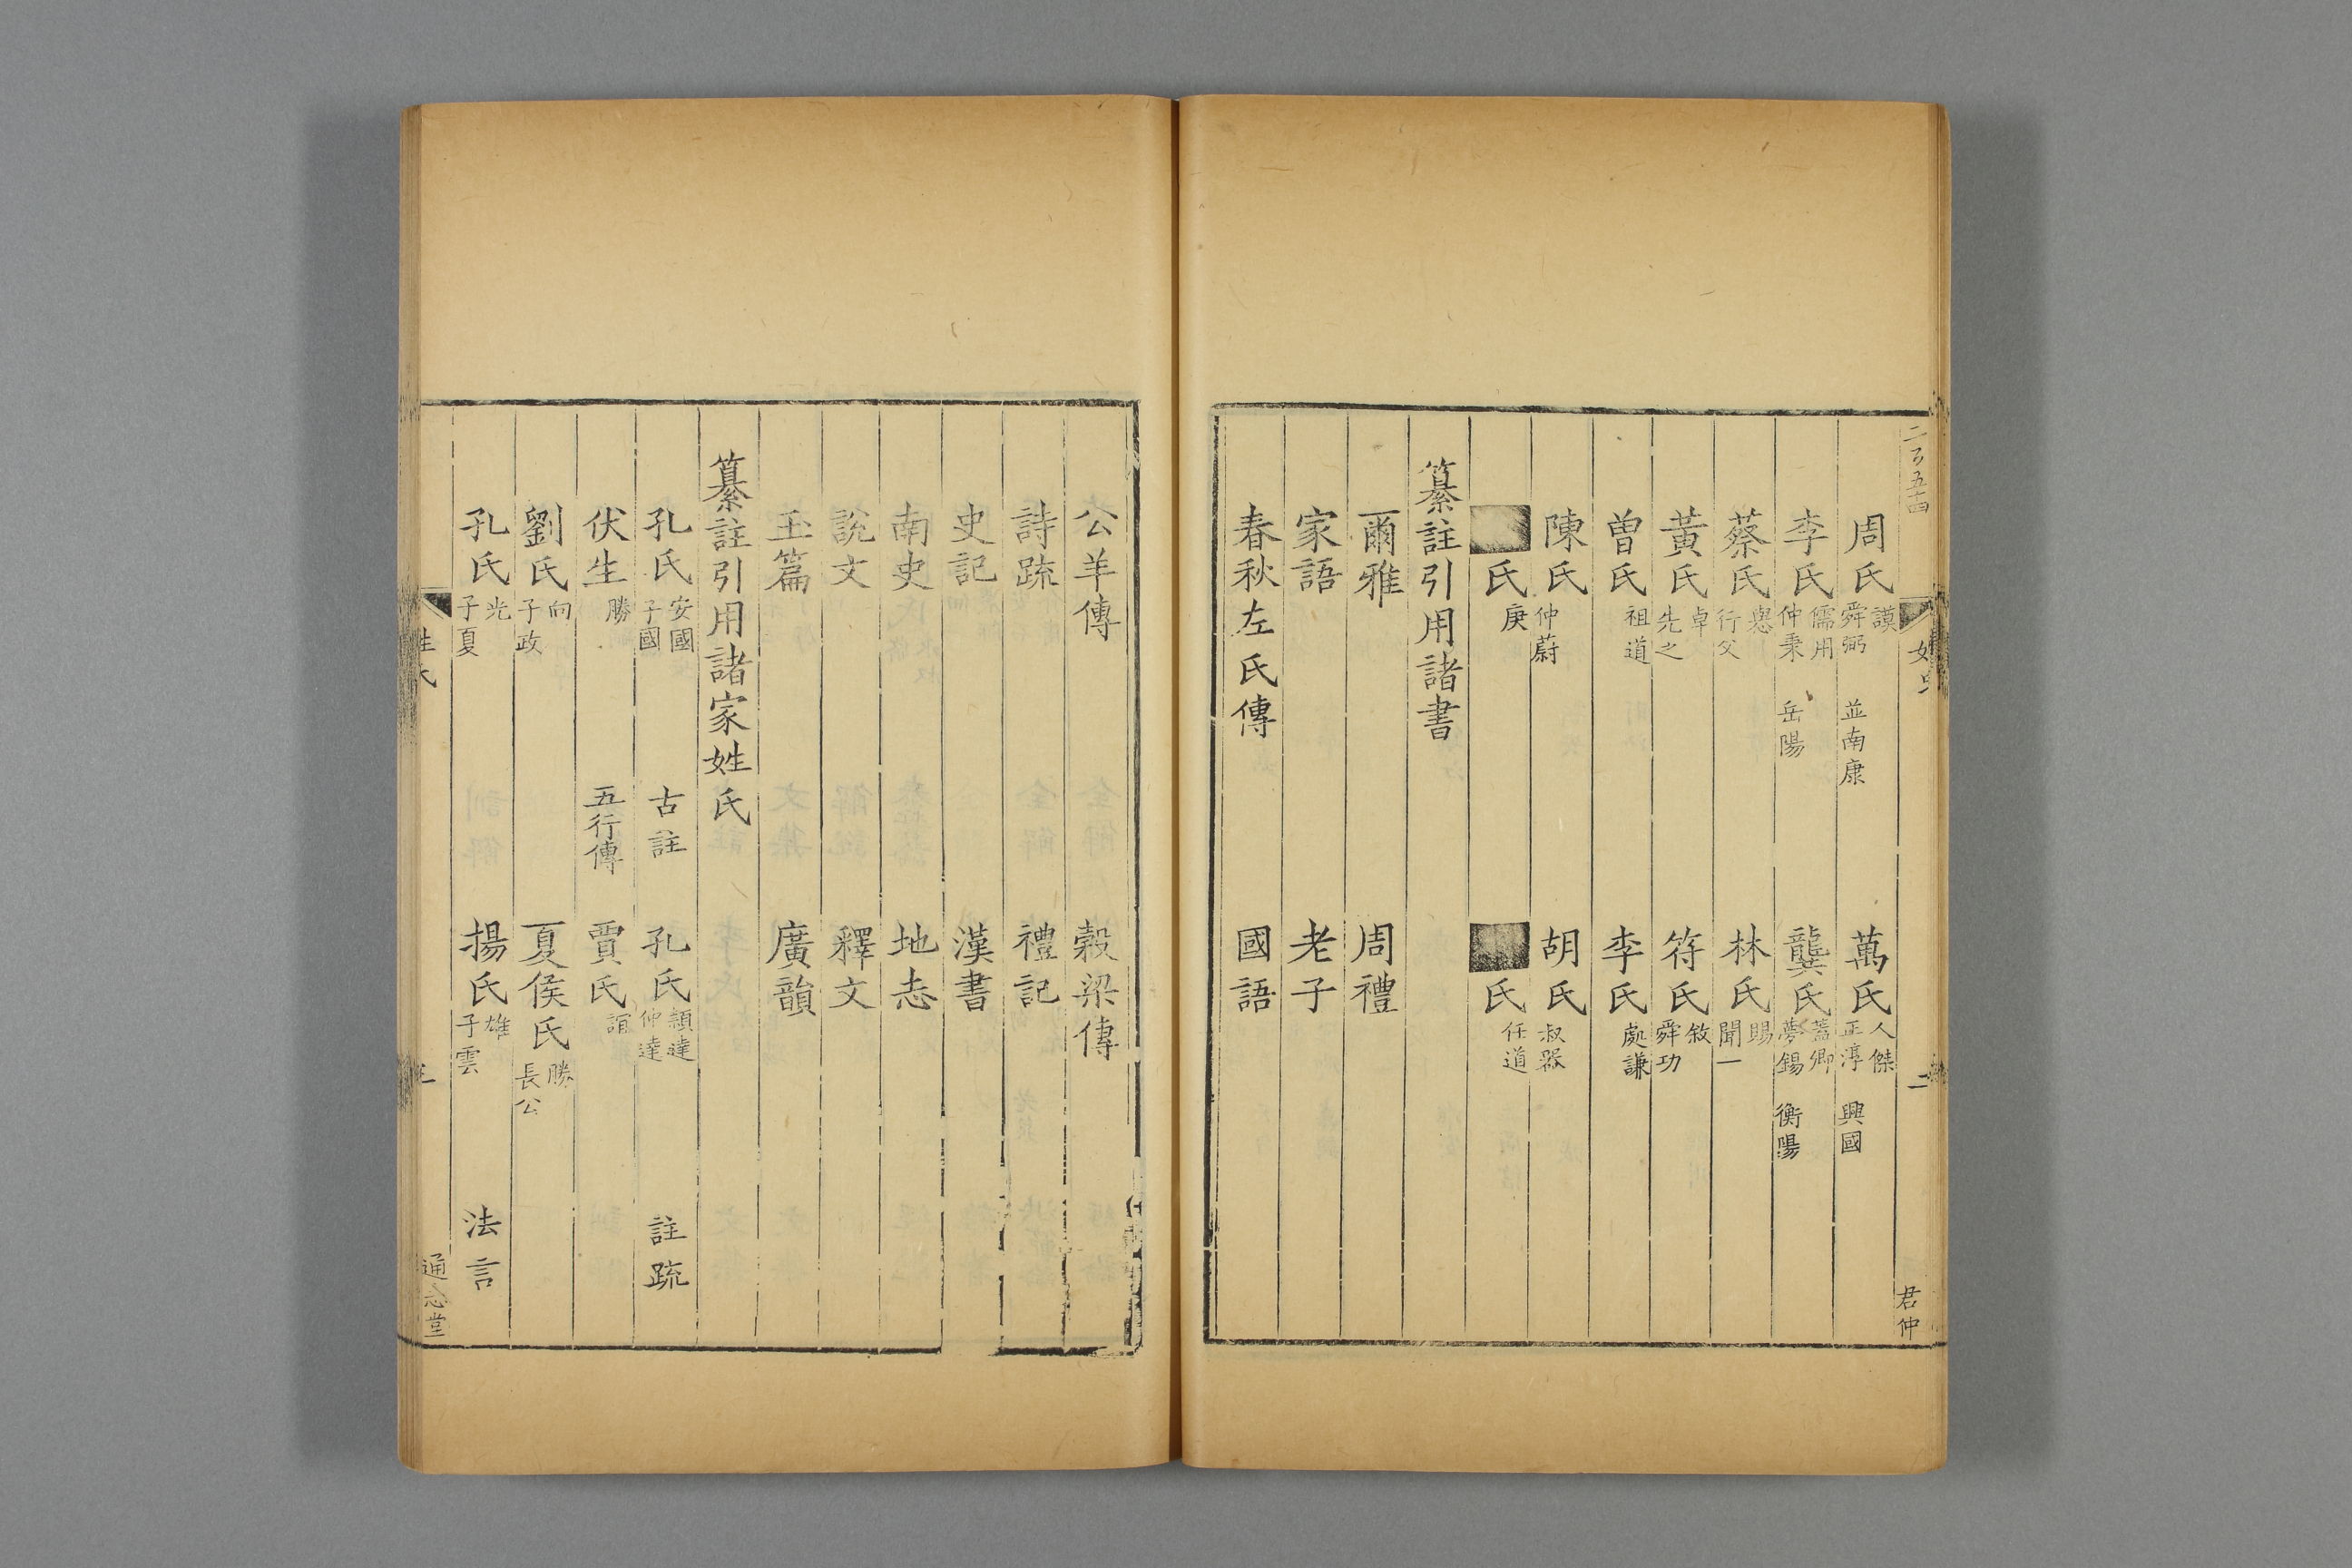 二百五十四
周氏 謨 舜弼 並南康 萬氏 人傑 正淳 興國
李氏 儒用 仲秉 岳陽 龔氏 蓋卿 夢錫 衡陽
蔡氏 㦛 行父 林氏 賜 聞一
黃氏 卓 先之 符氏 敘 舜功
曾氏 祖道 李氏 處謙
陳氏 仲蔚 胡氏 叔器
氏 庚 氏 任道
纂註引用諸書
爾雅 周禮
家語 老子
春秋左氏傳 國語
二
君仲
公羊傳 穀梁傳
詩疏 禮記
史記 漢書
南史 地志
說文 釋文
玉篇 廣韻
纂註引用諸家姓氏
孔氏 安國 子國 古註 孔氏 穎達 仲達 註疏
伏生 勝 五行傳 賈氏 誼
劉氏 向 子政 夏侯氏 勝 長公
孔氏 光 子夏 揚氏 雄 子雲 法言
姓氏
通志堂